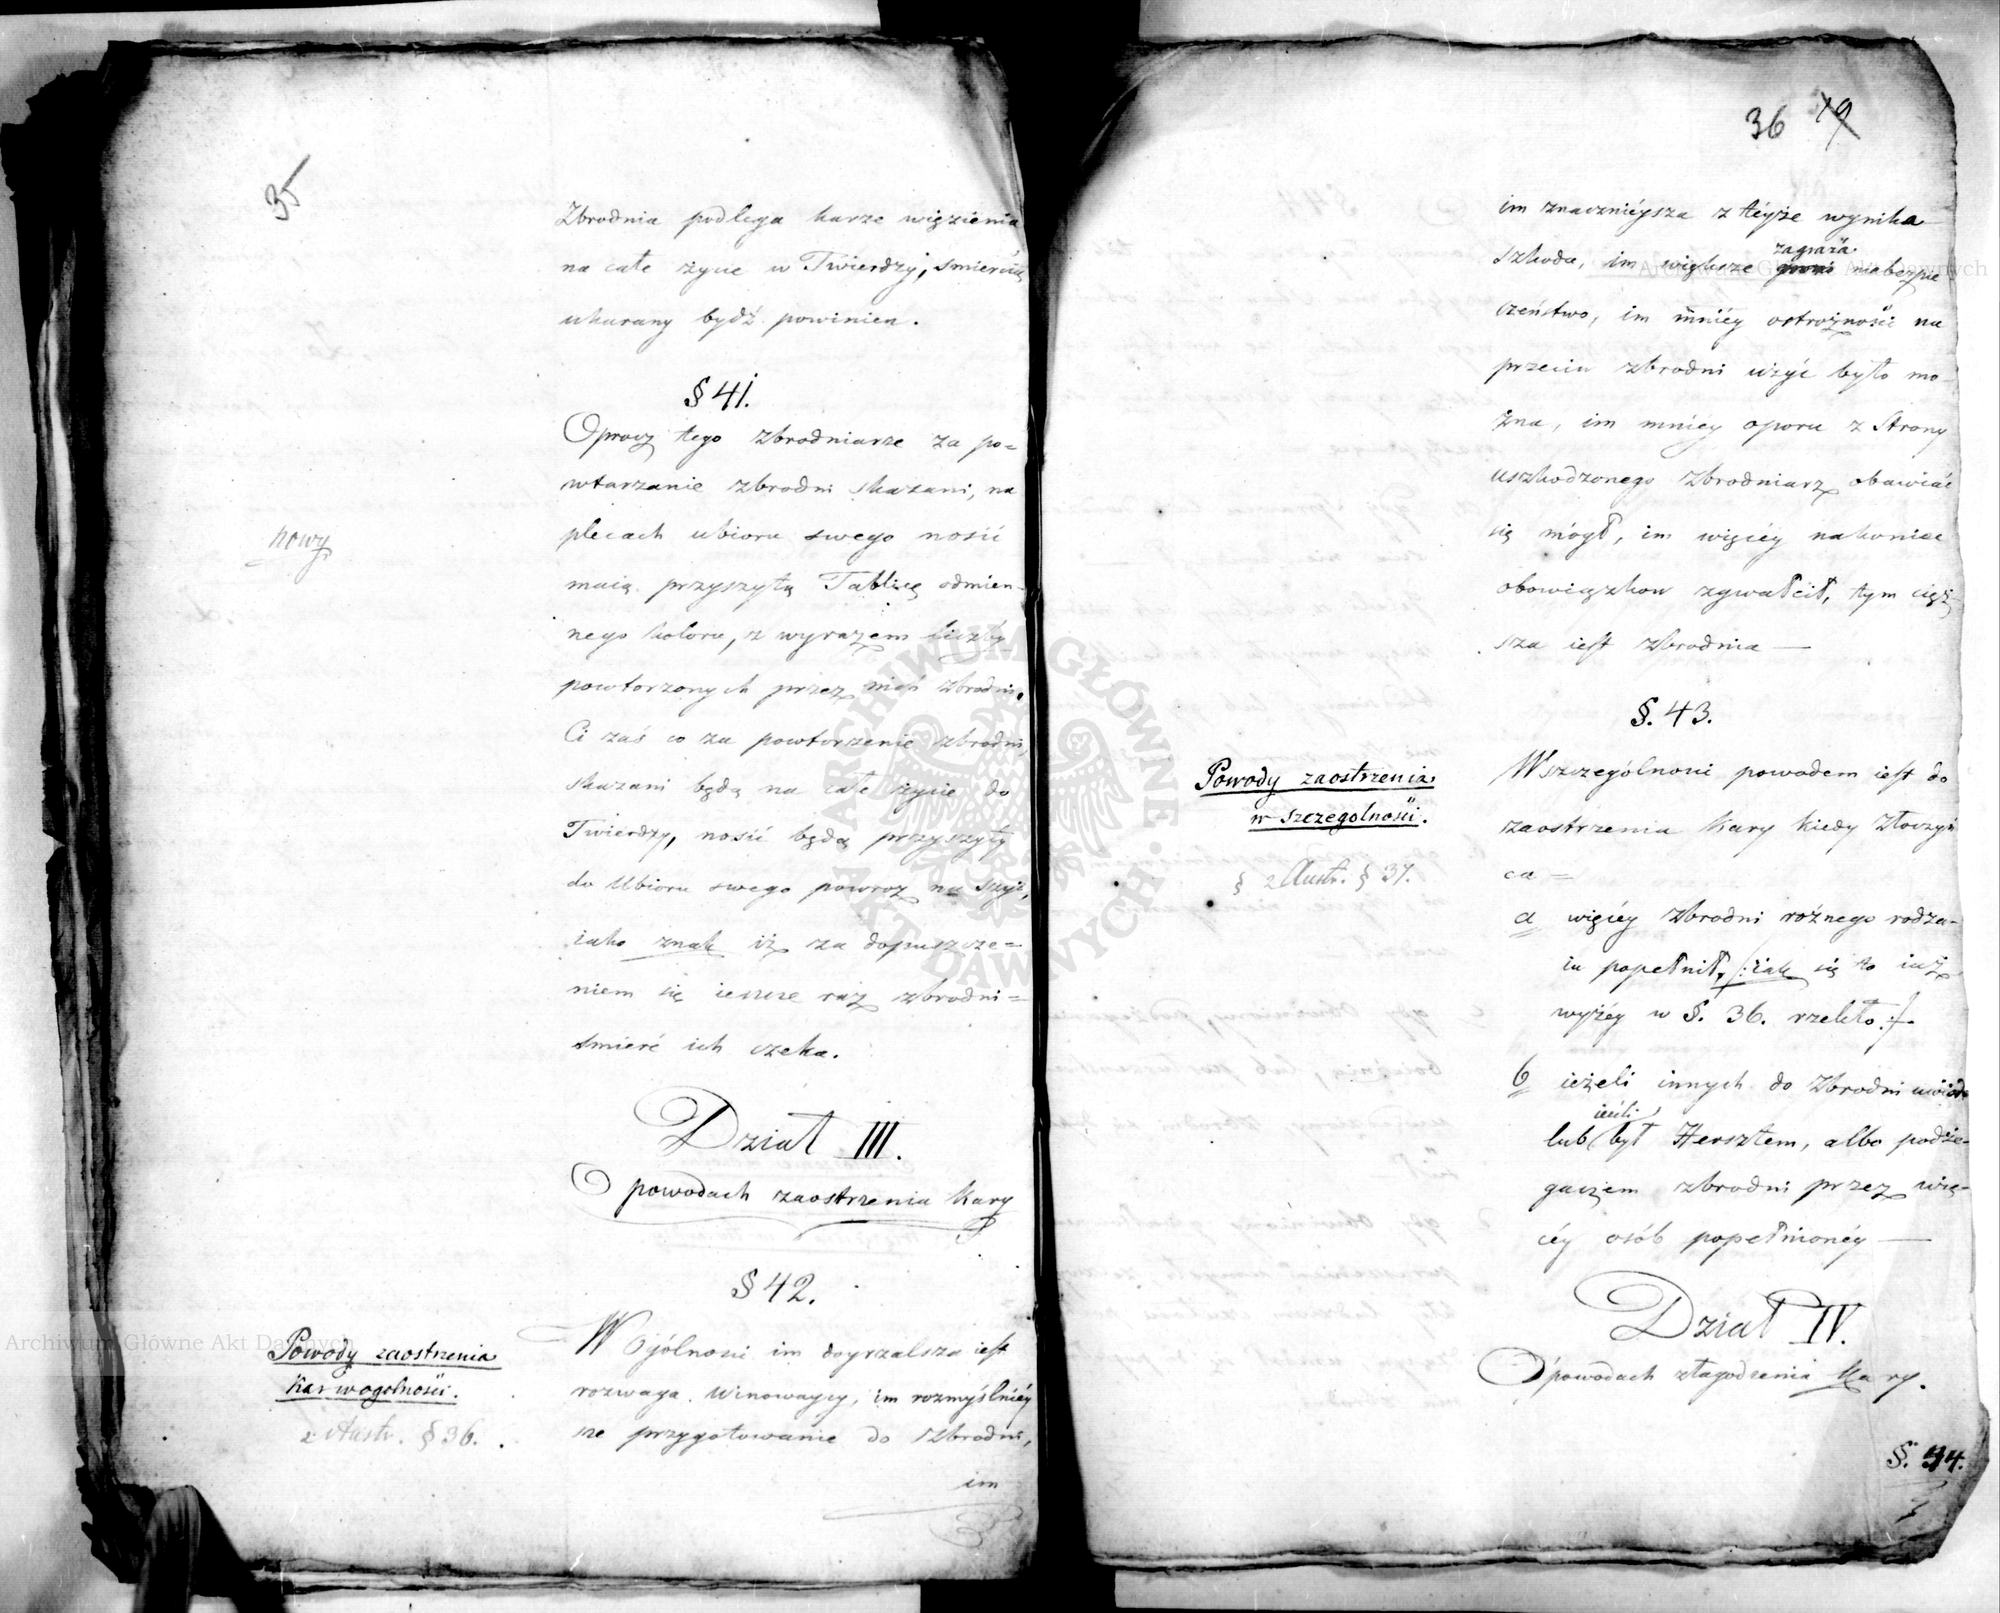 35
Zbrodnia podlega karze więzienia
na całe życie w Twierdzy, smiercią
ukarany bydź powinien.
§ 41.
Oprocz tego zbrodniarze za po=
wtarzanie zbrodni skazani, na
nowy
plecach ubioru swego nosić
maią przyszytą Tablicę odmien-
nego koloru, z wyrazem liczby
powtorzonych przez nich zbrodni.
Ci zaś co za powtorzenie zbrodni,
skazani będą na całe życie do
Twierdzy, nosić będą przyszyty
do Ubioru swego powroz na szyi,
iako znak iż za dopuszcze=
niem się ieszcze raz zbrodni=
smierć ich czeka.
Dział III.
O powodach zaostrzenia Kary
§ 42.
Powody zaostrzenia
Kar w ogolności.
2 Austr. § 36.
W Ogólnosci im doyrzalsza iest
rozwaga Winowaycy, im rozmyślniéy
sze przygotowanie do Zbrodni,
im
36 19
im znacznieysza z téyże wynika
szkoda, im większe zagraża niebezpie
czeństwo, im mniéy ostrożności na
przeciw zbrodni użyć było mo-
żna, im mniéy oporu z Strony
uszkodzonego Zbrodniarz obawiać
się mógł, im więcéy nakoniec
obowiązkow zgwałcił, tym cięż-
sza iest Zbrodnia —
§. 43.
Powody zaostrzenia
w szczegolności.
§ 2 Austr. § 37.
W szczególnosci powodem iest do
zaostrzenia Kary kiedy Złoczyń
ca =
a więcéy Zbrodni rożnego rodza-
iu popełnił, /: iak się to iuż
wyżéy w §. 36. rzekło :/
b ieżeli innych do Zbrodni uwiodł
ieśli
lub był Hersztem, albo podże-
gaczem zbrodni przez wię-
céy osób popełnionéy —
Dział IV.
O powodach złagodzenia Kary.
§. 44.
Archiwum Główne Akt Dawnych
Archiwum Główne Akt Dawnych
ARCHIWUM GŁÓWNE AKT DAWNYCH